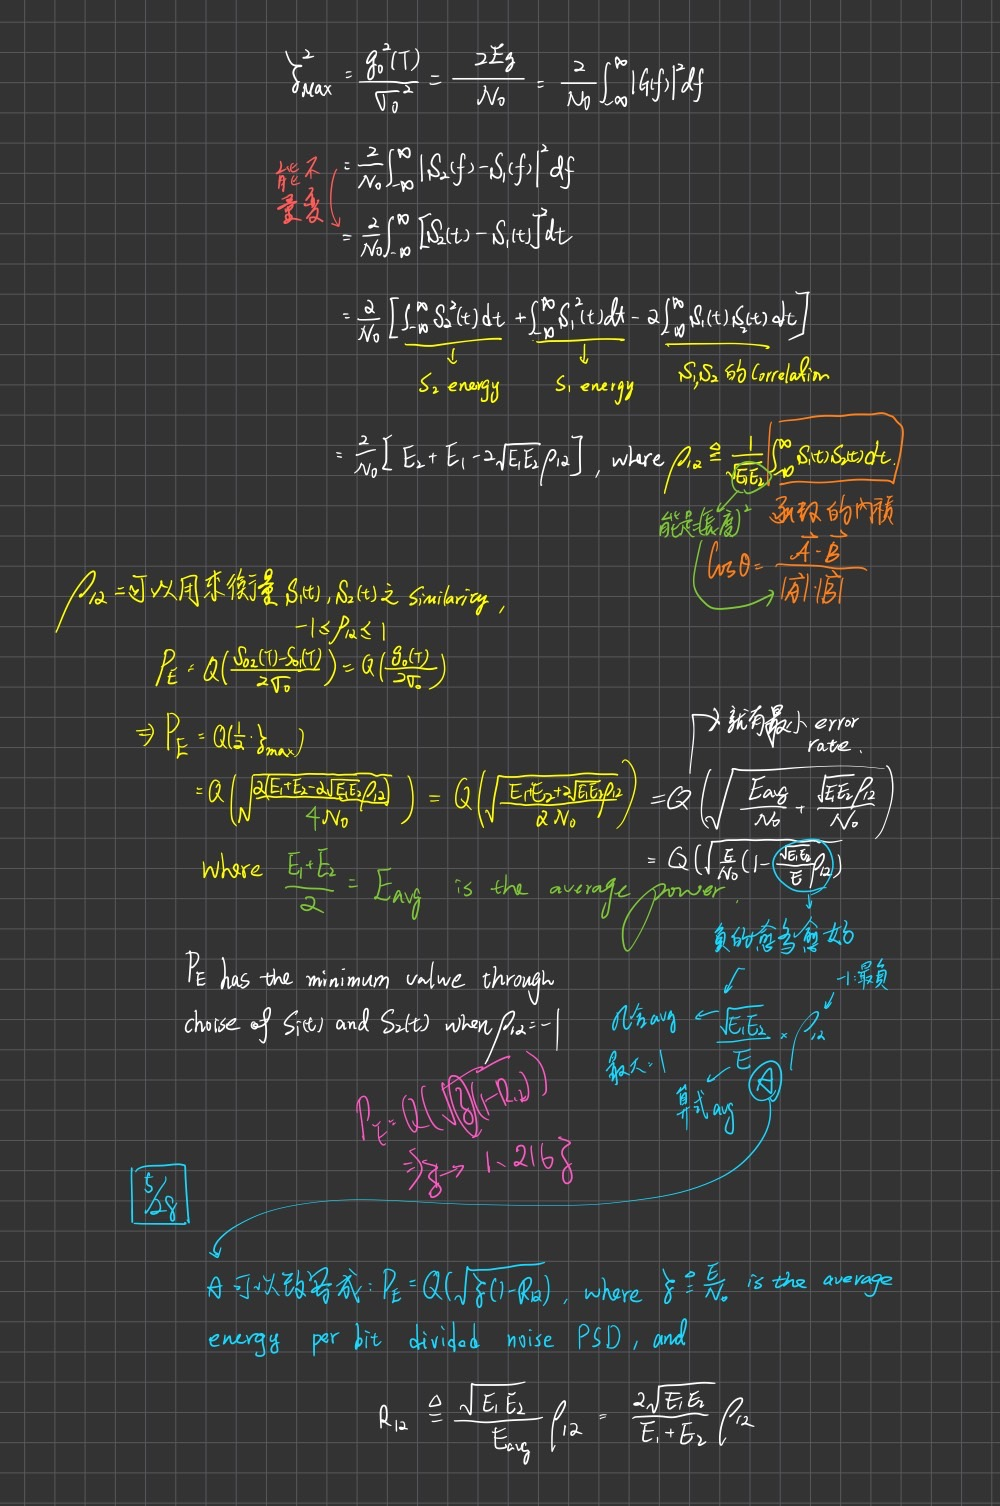 ζ²_Max = g₀²(T)/σ₀² = 2Eg/N₀ = 2/N₀ ∫_{-∞}^{∞} |G(f)|² df
= 2/N₀ ∫_{-∞}^{∞} |S₂(f) - S₁(f)|² df
能量不變
= 2/N₀ ∫_{-∞}^{∞} [S₂(t) - S₁(t)]² dt
= 2/N₀ [∫_{-∞}^{∞} S₂²(t) dt + ∫_{-∞}^{∞} S₁²(t) dt - 2∫_{-∞}^{∞} S₁(t) S₂(t) dt]
↓ ↓
S₂ energy S₁ energy S₁,S₂ 的 Correlation
= 2/N₀ [E₂ + E₁ - 2√(E₁E₂) ρ₁₂], where ρ₁₂ ≜ 1/√(E₁E₂) ∫_{-∞}^{∞} S₁(t) S₂(t) dt.
能是(長度)² 函數的內積
Cosθ = A⃗·B⃗ / |A⃗|·|B⃗|
ρ₁₂ = 可以用來衡量 S₁(t), S₂(t) 之 Similarity,
-1 ≤ ρ₁₂ ≤ 1
P_E = Q((S₀₂(T) - S₀₁(T))/2σ₀) = Q(g₀(T)/2σ₀)
→ 就有最小 error
rate.
⇒ P_E = Q(½·ζ_max)
= Q(√(2(E₁+E₂-2√(E₁E₂)ρ₁₂)/4N₀)) = Q(√((E₁+E₂+2√(E₁E₂)ρ₁₂)/2N₀)) = Q(√(Eavg/N₀ + √(E₁E₂)ρ₁₂/N₀))
= Q(√(E/N₀ (1 - √(E₁E₂)/E ρ₁₂)))
where (E₁+E₂)/2 = Eavg is the average power.
負的愈多愈好
P_E has the minimum value through
choise of S₁(t) and S₂(t) when ρ₁₂ = -1
-1:最負
几何avg ← √(E₁E₂)/E × ρ₁₂
最大:1
算式avg
A
P_E = Q(√(ζ(1-R₁₂)))
⇒ ζ → 1.216ζ
5/28
A 可以改寫成: P_E = Q(√(ζ(1-R₁₂))), where ζ ≜ E/N₀ is the average
energy per bit divided noise PSD, and
R₁₂ ≜ √(E₁E₂)/Eavg ρ₁₂ = 2√(E₁E₂)/(E₁+E₂) ρ₁₂